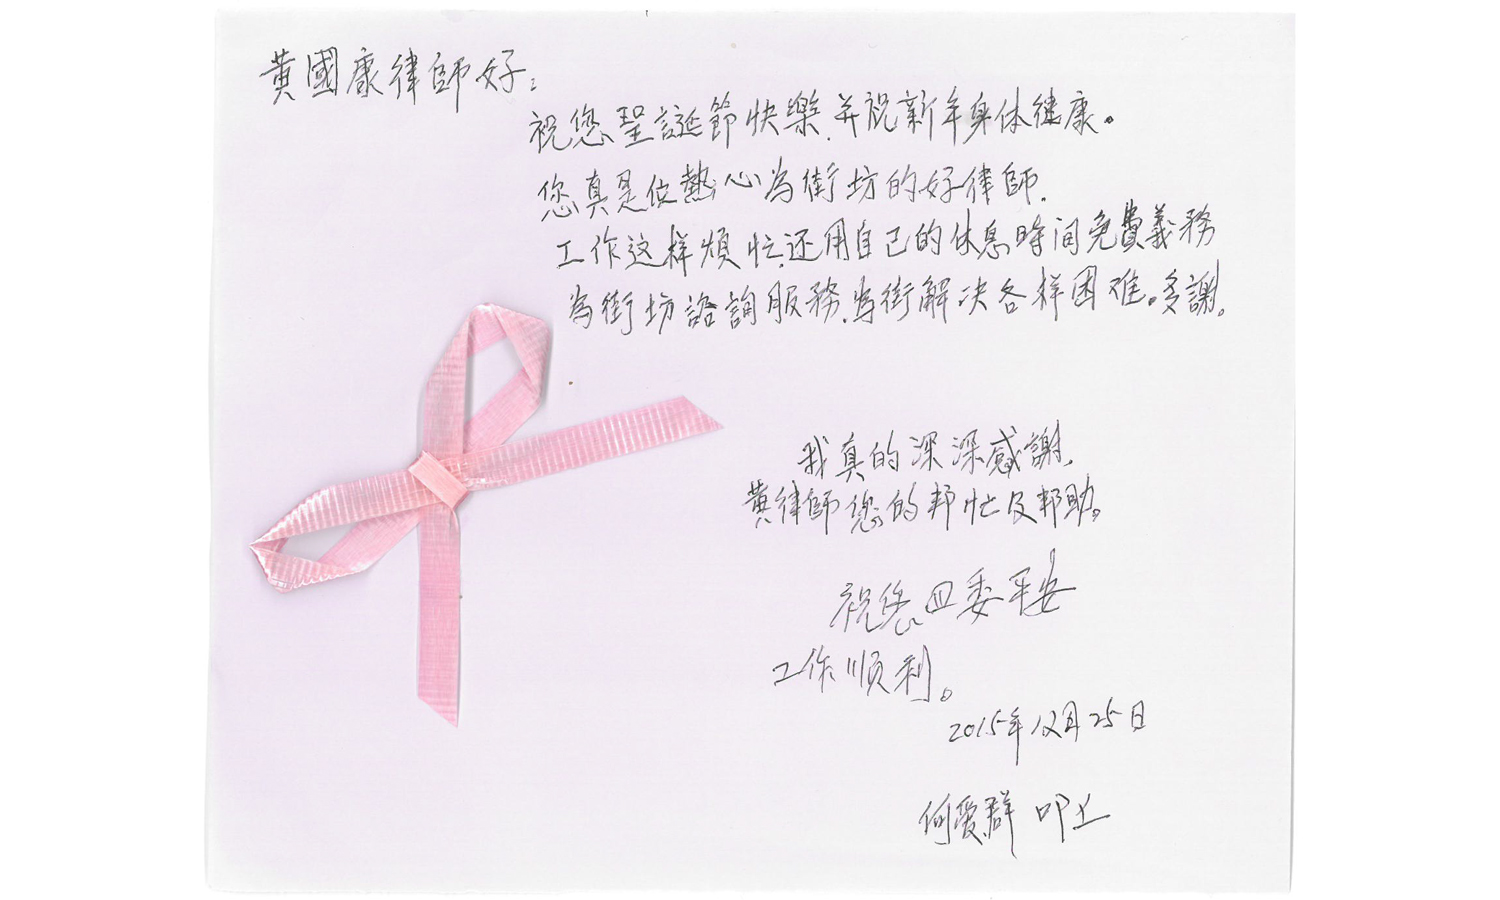 黃國康律師好：
祝您聖誕節快樂.并祝新年身体健康。
您真是位熱心為街坊的好律師.
工作这样煩忙.还用自己的休息時间免費義務
為街坊諮詢服務.為街解决各样困难。多謝。
我真的深深感謝.
黃律師您的邦忙及邦助。
祝您四委平安
工作順利。
2015年12月25日
何愛群 叩上